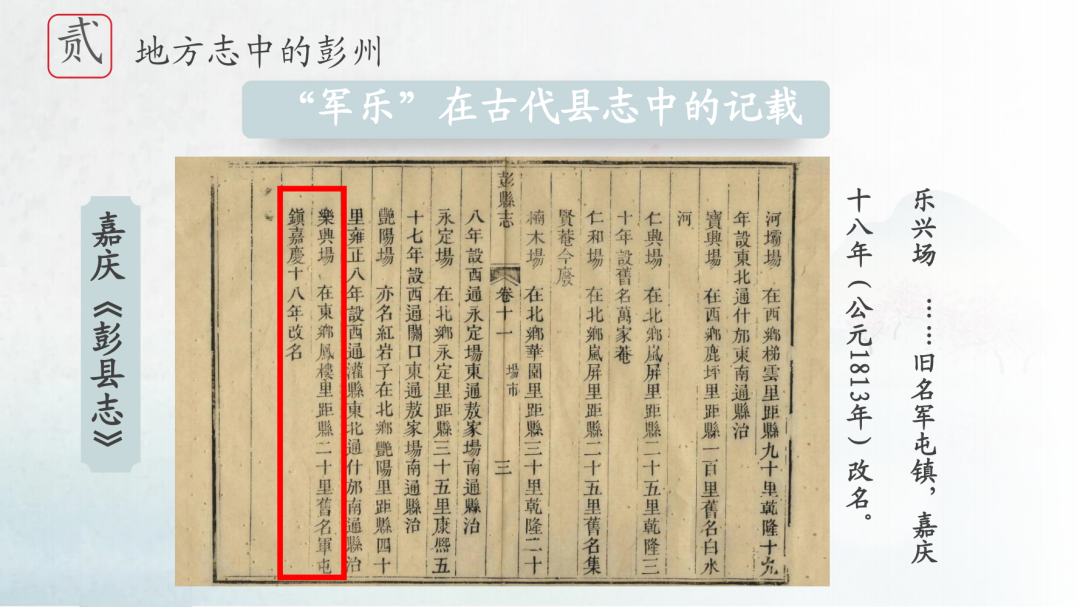 贰
地方志中的彭州
“军乐”在古代县志中的记载
嘉庆《彭县志》
河壩場 在西鄉梯雲里距縣九十里乾隆十九
年設東北通什邡東南通縣治
寶興場 在西鄉鹿坪里距縣一百里舊名白水
河
仁興場 在北鄉嵐屏里距縣二十五里乾隆三
十年設舊名萬家菴
仁和場 在北鄉嵐屏里距縣二十五里舊名集
賢菴今廢
楠木場 在北鄉華園里距縣三十里乾隆二十
彭縣志 卷十一 場市 三
八年設西通永定場東通敖家場南通縣治
永定場 在北鄉永定里距縣三十五里康熙五
十七年設西通關口東通敖家場南通縣治
艷陽場 亦名紅岩子在北鄉艷陽里距縣四十
里雍正八年設西通灌縣東北通什邡南通縣治
樂興場 在東鄉鳳樓里距縣二十里舊名軍屯
鎮嘉慶十八年改名
乐兴场 ……旧名军屯镇，嘉庆
十八年（公元1813年）改名。